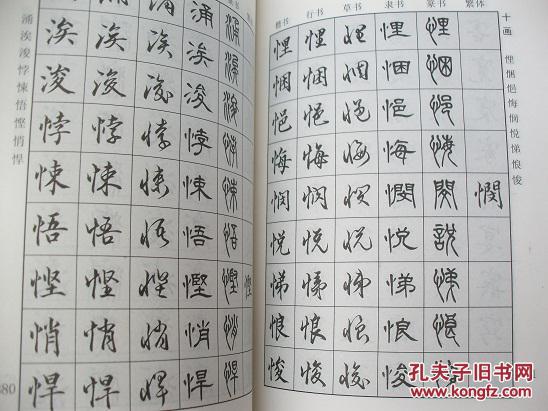 涌涘浚悖悚悟悭悄悍
涌 涌 涌 涌 涌
涘 涘 涘 涘 涘
浚 浚 浚 浚 浚
悖 悖 悖 悖 悖
悚 悚 悚 悚 悚
悟 悟 悟 悟 悟
悭 悭 悭 慳 慳
悄 悄 悄 悄 悄
悍 悍 悍 悍 悍
80
十画
悝悃悒悔悯悦悌悢悛
楷书 行书 草书 隶书 篆书 繁体
悝 悝 悝 悝 悝
悃 悃 悃 悃 悃
悒 悒 悒 悒 悒
悔 悔 悔 悔 悔
悯 悯 悯 憫 閔 憫
悦 悦 悦 悦 説
悌 悌 悌 悌 悌
悢 悢 悢 悢 悢
悛 悛 悛 悛 悛
孔夫子旧书网
KONGFZ.COM